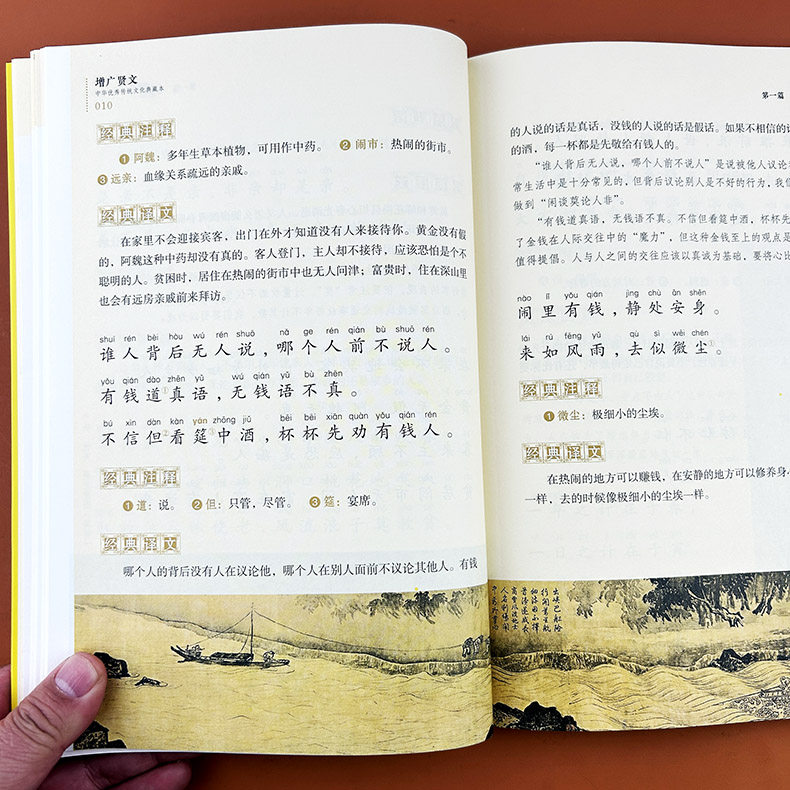 增广贤文
中华优秀传统文化典藏本
010
经典注释
❶ 阿魏：多年生草本植物，可用作中药。 ❷ 闹市：热闹的街市。
❸ 远亲：血缘关系疏远的亲戚。
经典译文
在家里不会迎接宾客，出门在外才知道没有人来接待你。黄金没有假
的，阿魏这种中药却没有真的。客人登门，主人却不接待，应该恐怕是个不
聪明的人。贫困时，居住在热闹的街市中也无人问津；富贵时，住在深山里
也会有远房亲戚前来拜访。
shuí rén bèi hòu wú rén shuō nǎ ge rén qián bù shuō rén
谁人背后无人说，哪个人前不说人。
yǒu qián dào zhēn yǔ wú qián yǔ bù zhēn
有钱道①真语，无钱语不真。
bú xìn dàn kàn yán zhōng jiǔ bēi bēi xiān quàn yǒu qián rén
不信但②看筵③中酒，杯杯先劝有钱人。
经典注释
❶ 道：说。 ❷ 但：只管，尽管。 ❸ 筵：宴席。
经典译文
哪个人的背后没有人在议论他，哪个人在别人面前不议论其他人。有钱
第一篇
的人说的话是真话，没钱的人说的话是假话。如果不相信的话
的酒，每一杯都是先敬给有钱人的。
“谁人背后无人说，哪个人前不说人”是说被他人议论
常生活中是十分常见的，但背后议论别人是不好的行为，我们
做到“闲谈莫论人非”。
“有钱道真语，无钱语不真。不信但看筵中酒，杯杯先
了金钱在人际交往中的“魔力”，但这种金钱至上的观点是
值得提倡。人与人之间的交往应该以真诚为基础，要将心比
nào lǐ yǒu qián jìng chù ān shēn
闹里有钱，静处安身。
lái rú fēng yǔ qù sì wēi chén
来如风雨，去似微尘①。
经典注释
❶ 微尘：极细小的尘埃。
经典译文
在热闹的地方可以赚钱，在安静的地方可以修养身
一样，去的时候像极细小的尘埃一样。